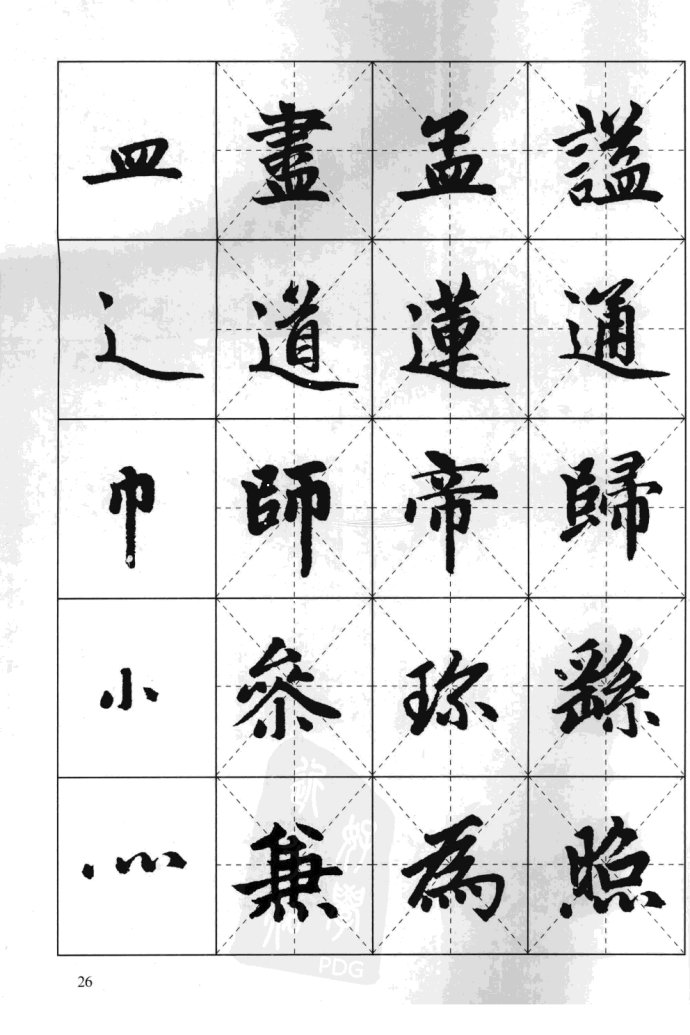 皿 盡 孟 謚
辶 道 蓮 通
巾 師 帝 歸
小 叅 珎 繇
灬 兼 為 照
PDG
26